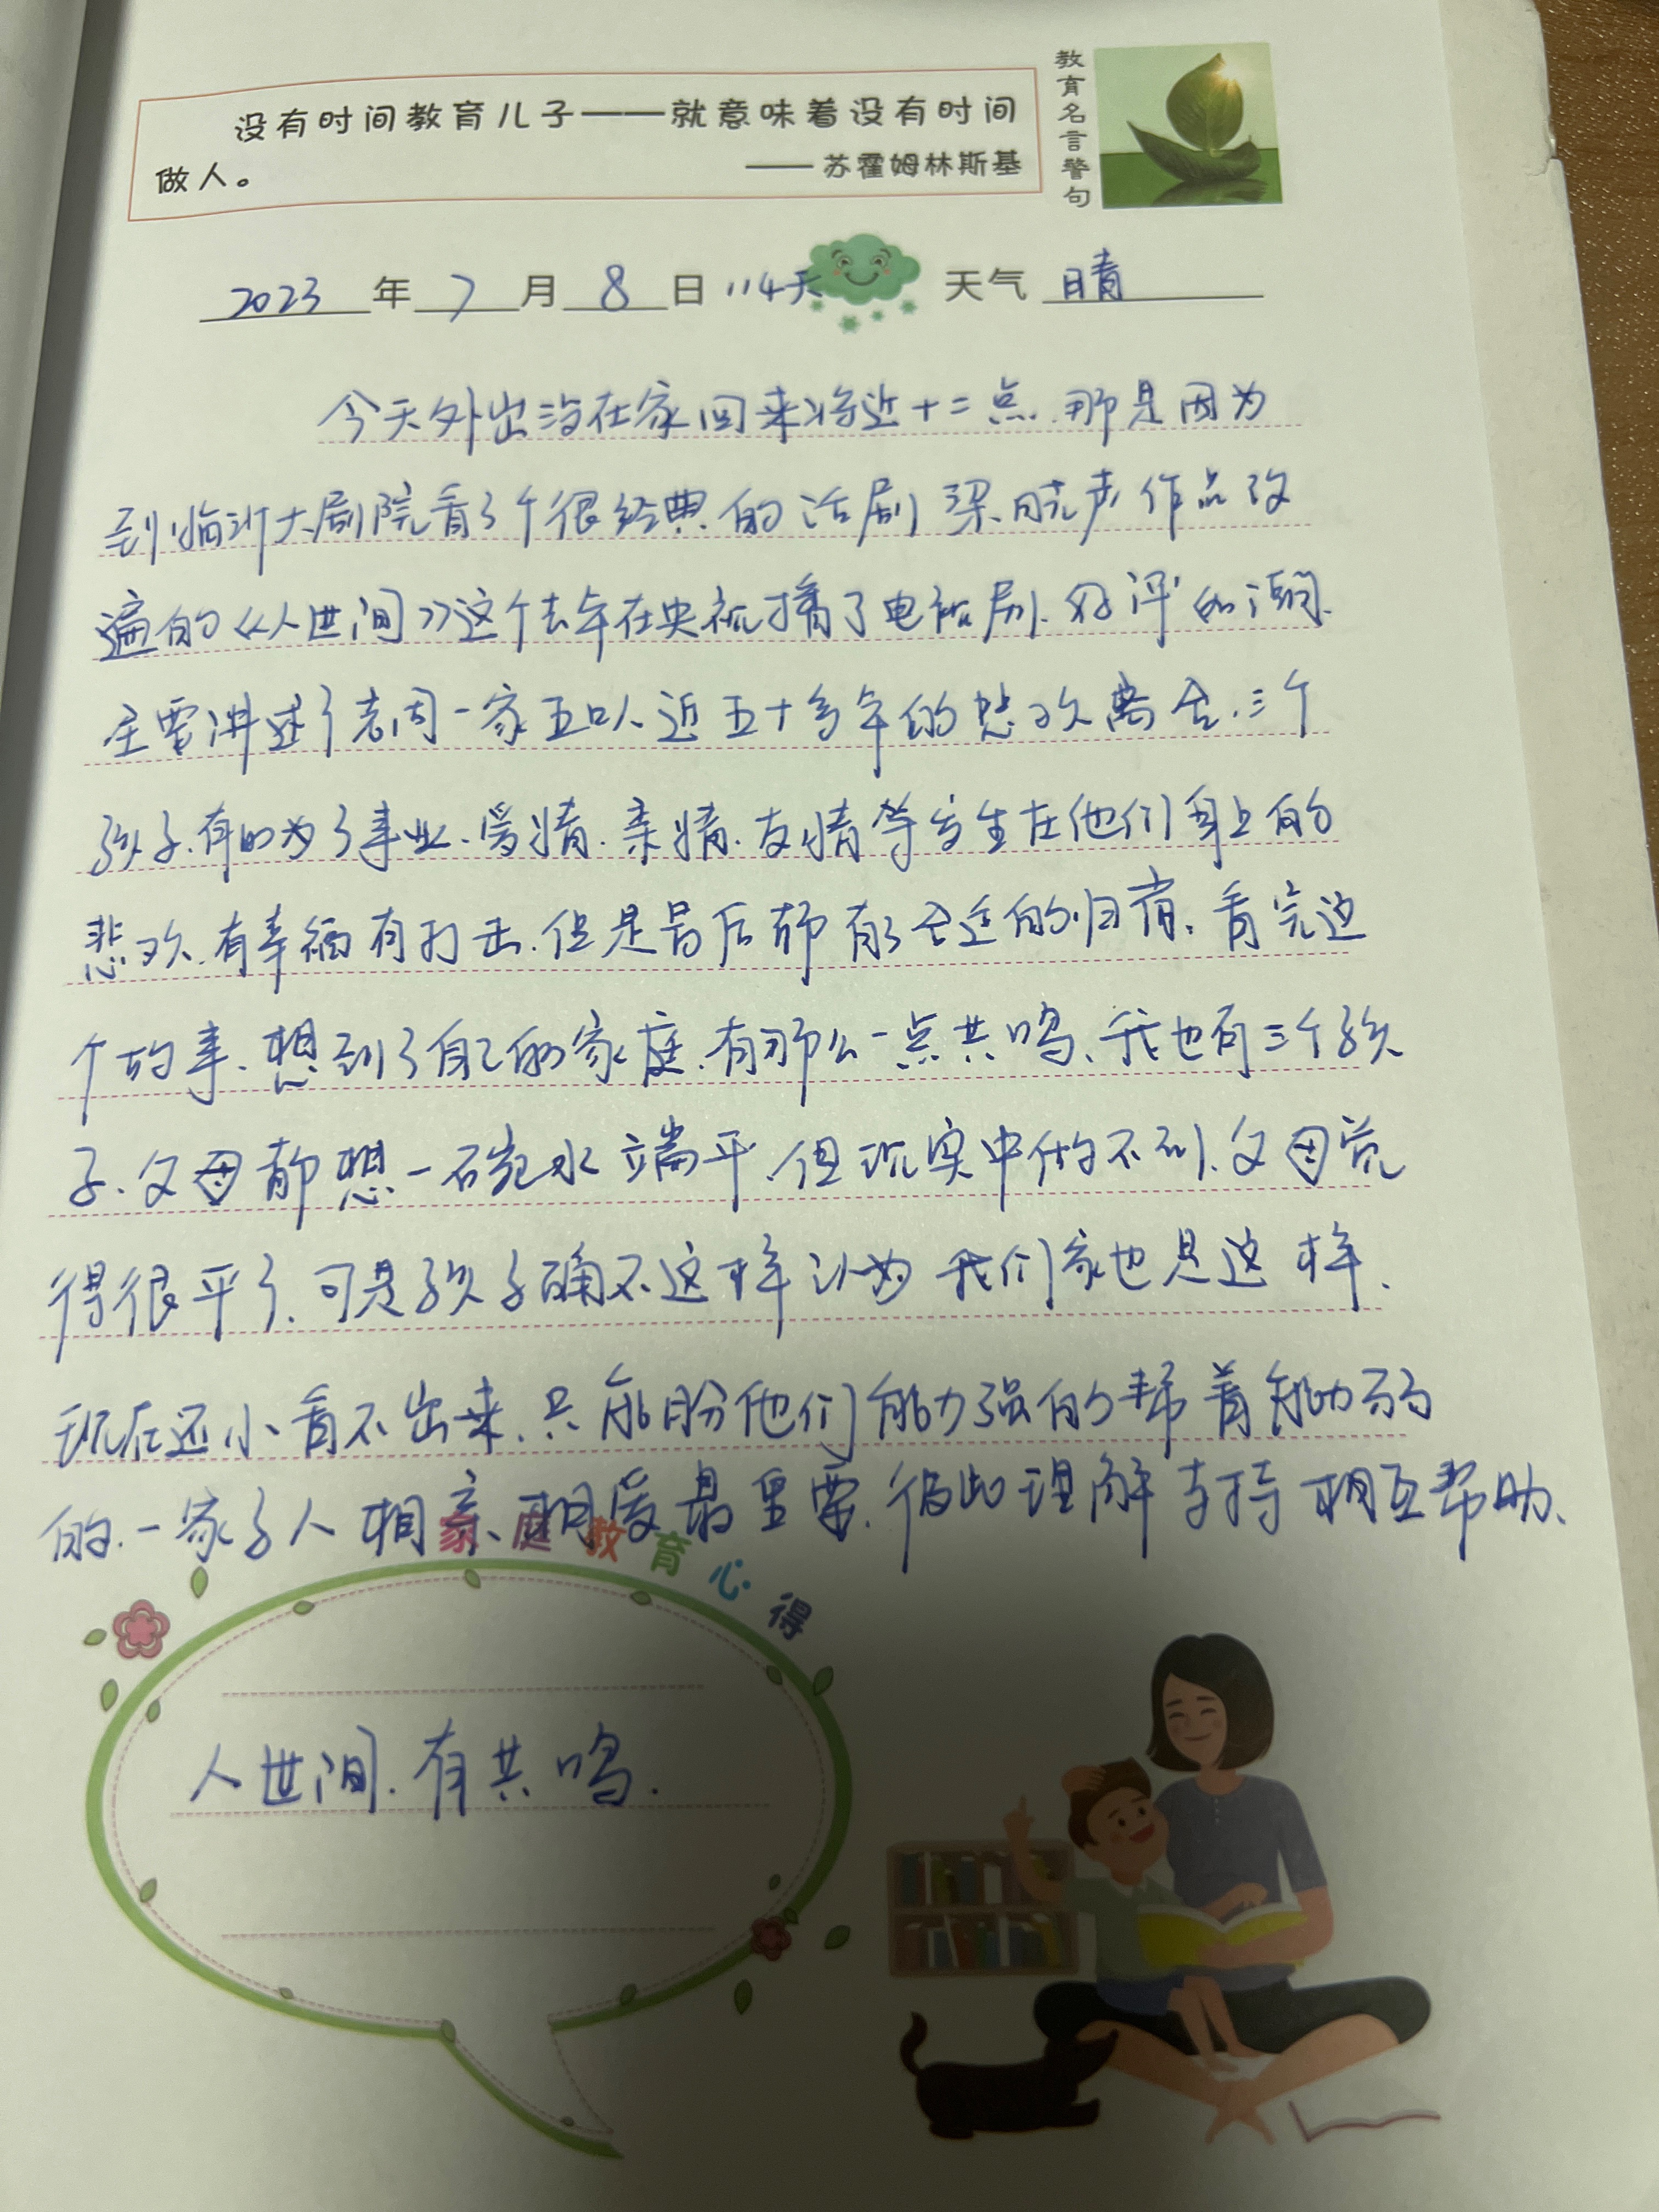 没有时间教育儿子——就意味着没有时间
做人。
——苏霍姆林斯基
教育名言警句
2023年7月8日 114天 天气 晴
今天外出没在家回来将近十二点.那是因为
到临沂大剧院看了个很经典的话剧 梁晓声作品改
遍的《人世间》这个去年在央视播了电视剧.好评如潮.
主要讲述了老周一家五口人近五十多年的悲欢离合.三个
孩子.有的为了事业.爱情.亲情.友情等发生在他们身上的
悲欢.有幸福有打击.但是最后都有了合适的归宿.看完这
个故事.想到了自己的家庭.有那么一点共鸣、我也有三个孩
子.父母都想一碗水端平.但现实中做不到.父母觉
得很平了.可是孩子确不这样认为 我们家也是这样.
现在还小看不出来.只能盼他们能力强的帮着能力弱
的.一家子人相亲相爱最重要.彼此理解支持相互帮助、
家庭教育心得
人世间.有共鸣.